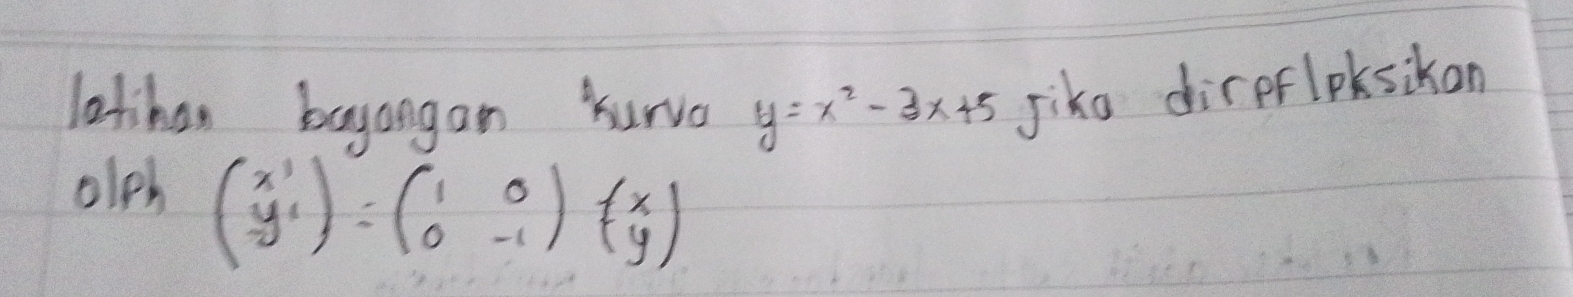 latihan bayangan kurva y = x² - 3x + 5 jika direfleksikan
oleh (x' y') = (1 0 0 -1) (x y)